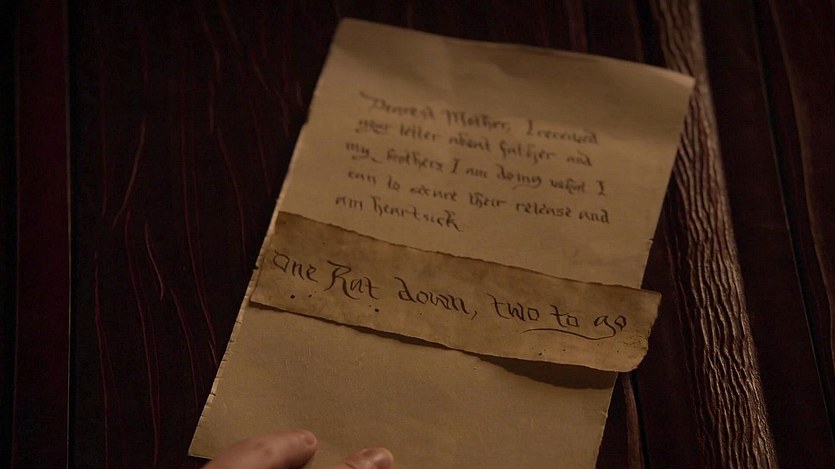 Dearest Mother, I received
your letter about father and
my brothers I am doing what I
can to secure their release and
am heartsick
One Rat down, two to go